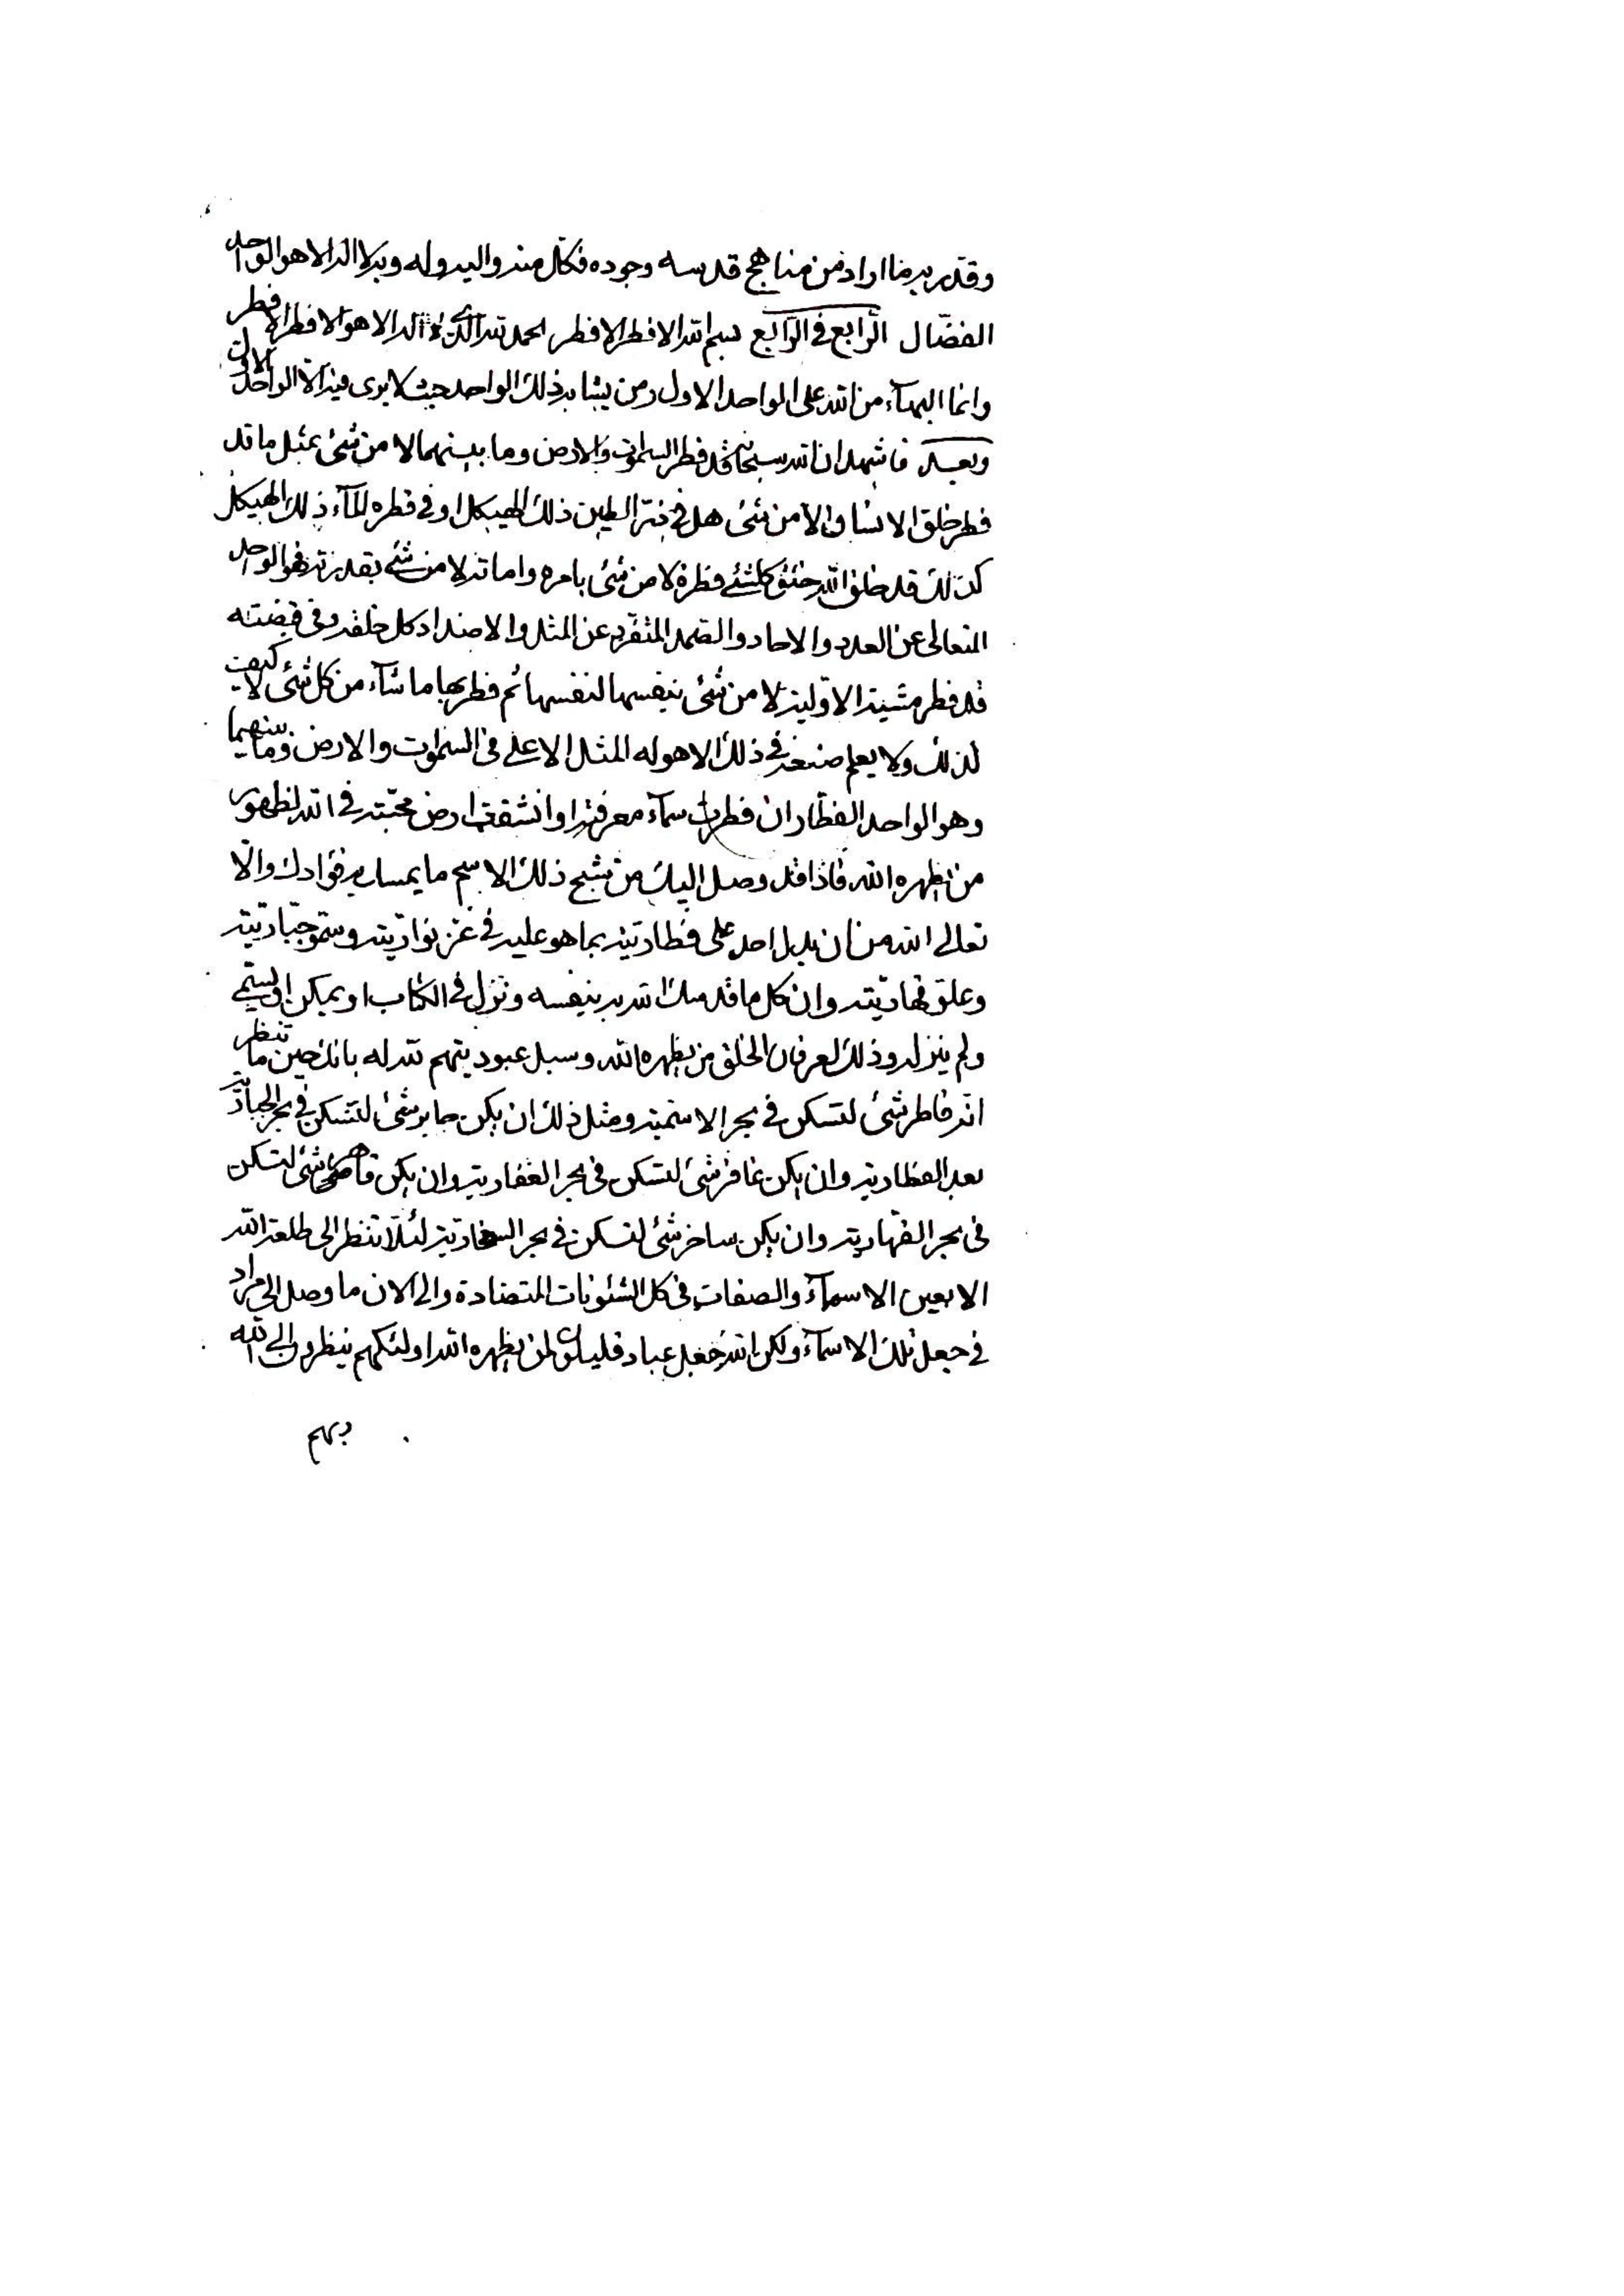 وقدّر به ما اراد من مناهج قدسه وجوده فكلّ منه واليه وله وبه لا اله الا هو الواحد
الفضّال الرّابع في الرّابع بسم الله الافطر الافطر الحمد لله الذي لا اله الا هو الافطر الافطر
وانما البهآء من الله على الواحد الاول ومن يشابه ذلك الواحد حيث لا يرى فيه الا الواحد الاول
وبعد فاشهد ان الله سبحانه قد فطر السموات والارض وما بينهما لا من شئ بمثل ما قد
فطر خلق الانسان لا من شئ هل في الطين ذلك الهيكل او في قطره المآء ذلك الهيكل
كذلك قد خلق الله خلق كلشئ فطرة لا من شئ بامره واما ته لا من شئ بقدرته فهو الواحد
المتعالى عن العدد والاحاد والصمد المتفرد عن المثل والاضداد كل خلقه وفى قبضته
قد فطر مشيته الاولية لا من شئ بنفسها لنفسها ثم فطر بها ما شآء من كل شئ لا كيف
لذلك ولا يعلم صنعه في ذلك الا هو له المثل الاعلى فى السموات والارض وما بينهما
وهو الواحد الفطار ان فطرت سمآء معرفته او انشقت ارض محبته في الله لظهور
من يظهره الله فاذا قد وصل اليك من شبح ذلك الاسم ما يمسك به فؤادك والا
تعالى الله من ان يدل احد على فطاريته بما هو عليه في عز نواريته وسمو جباريته
وعلو قهاريته وان كل ما قد سمى الله به نفسه ونزل في الكتاب او يمكن ان يسمى
ولم ينزله وذلك لعرفان الخلق من يظهره الله وسبل عبوديتهم لله له بانك حين ما تنظر
انه فاطر شئ لتسكن في بحر الاسمية ومثل ذلك ان يكن جابر شئ لتسكن في بحر الجبارية
بعد الفطارية وان يكن غافر شئ لتسكن فى بحر الغفارية وان يكن قاهر شئ لتسكن
فى بحر القهارية وان يكن ساخر شئ لتسكن في بحر السخارية لئلا تنظر الى طلعة الله
الا بعين الاسمآء والصفات فى كل الشئونات المتضادة والى الان ما وصل الى مراد
في جعل تلك الاسمآء ولكن الله جعل عباد قليلون لمن يظهره الله اولئكهم ينظرون الى الله
بهم